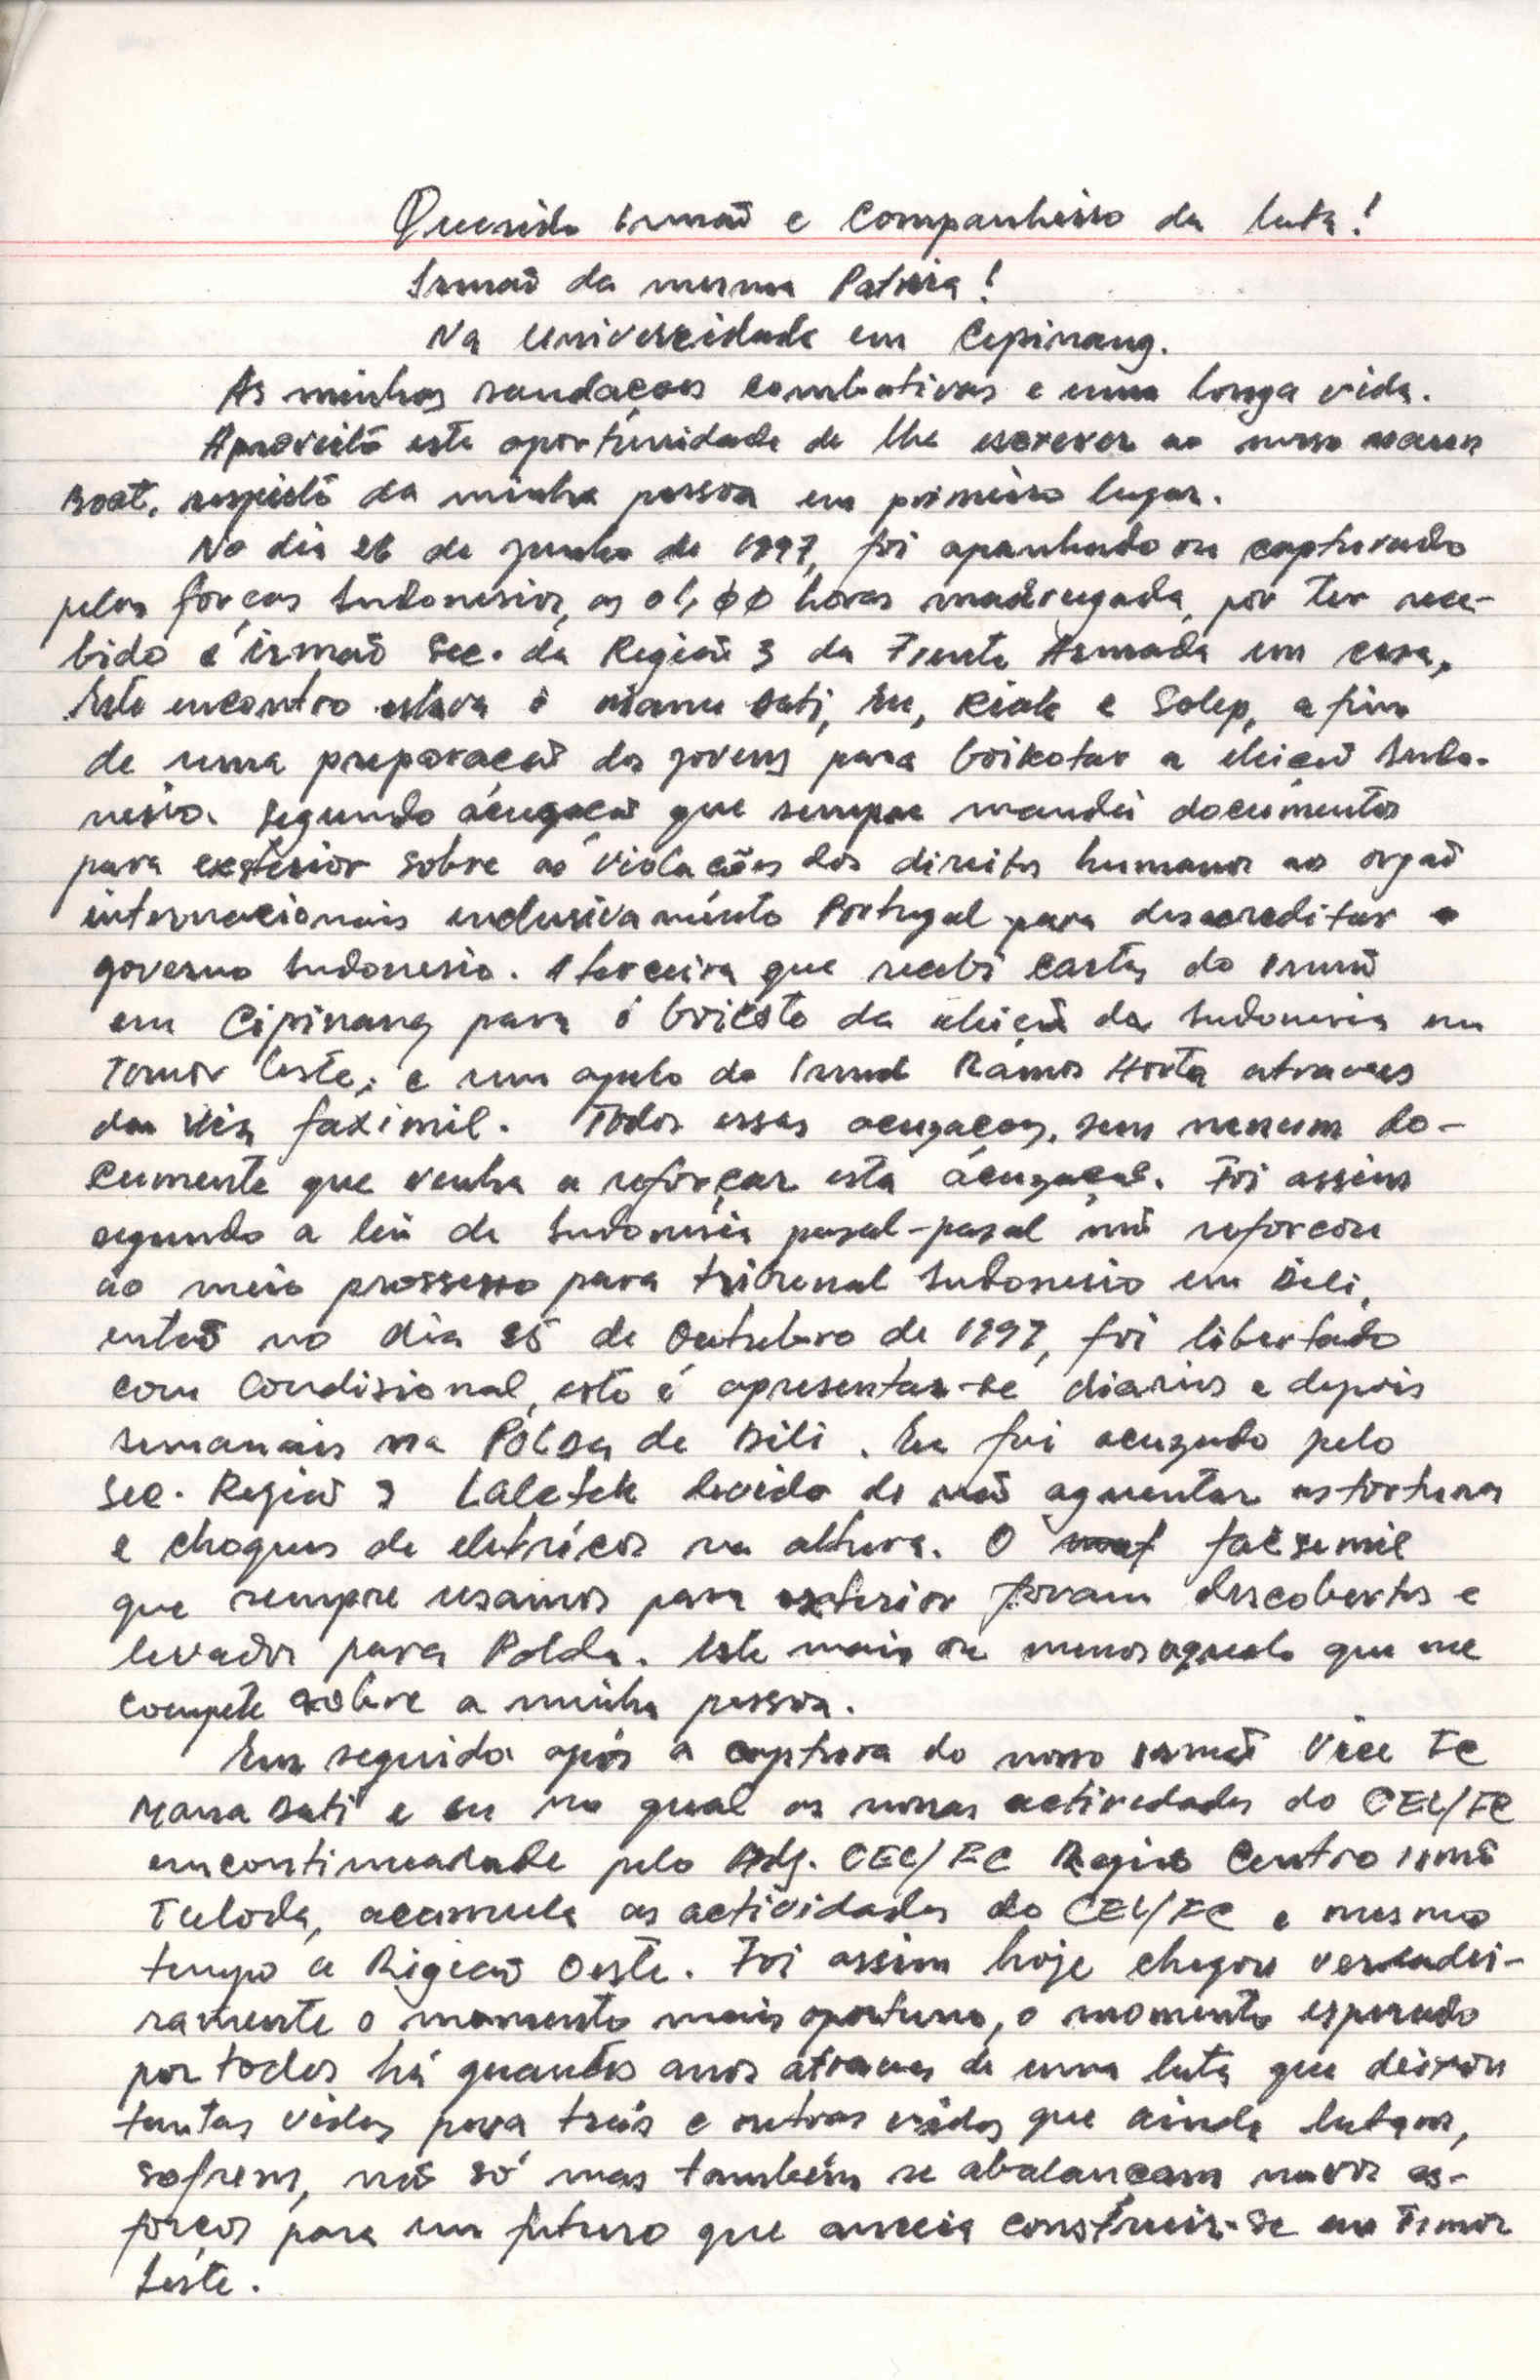 Querido irmaõ e Companheiro da luta!
Irmaõ da mesma Patria!
Na Universidade em Cipinang.
As minhas saudaçoes combativas e uma longa vida.
Aproveitó este oportunidade de lhe escrever ao nosso
Boot, respeitó da minha pessoa em primeiro lugar.
No dia 26 de Junho de 1997, foi apanhado ou capturado
pelas forças Indonesias, as 01,00 horas madrugada, por ter rece-
bido é irmaõ Sec. da Regiaõ 3 da Frente Armada em casa,
Este encontro estava ó Manu Bati, Eu, Riak e Solep, a fim
de uma preparaçaõ dos jovens para boikotar a eleiçaõ Indo-
nesia. Segundo ácuzaçaõ que sempre mandei documentos
para exsterior sobre as violações dos direitos humanos ao orgaõ
internacionais enclusivaménto Portugal para desacreditar o
governo Indonesio. A terceira que recebi cartas do irmaõ
em Cipinang para ó boicóto da eleiçaõ da Indonesia em
Timor Leste, e um apelo do Irmaõ Rámos Horta atravaes
da via faximil. Todos essas acuzaçoes, sem nenum do-
cumente que venha a reforçar esta ácuzaçaõ. Foi assim
segundo a lei de Indonesia pasal-pasal naõ reforcou
ao meio prossesso para tribunal Indonesio em Dili,
entaõ no dia 25 de Outubro de 1997, foi libertado
com Condisional, esto é apresentar-se diarios e depois
semanais na Pólda de Dili. Eu fui acuzado pelo
Sec. Regiaõ 3 Laletek devido de naõ aguentar as torturas
e choques de eletrícos na altura. O facsemil
que sempre usamos para exterior foram descobertos e
levados para Polda. Este mais ou menos aquelo que me
compete sobre a minha pessoa.
Em seguida após a captura do nosso irmaõ Vice FC
Mana Bati e eu no qual as nossas actividades do CEL/FC
emcontinuadade pelo Adj. CEL/FC Regiaõ Centro irmaõ
Tuloda, acumula as actividades do CEL/FC e mesmo
tempo a Rigiaõ Oeste. Foi assim hoje chegou verdadei-
ramente o momento mais oportuno, o momento esperado
por todos há quantos anos atraves de uma luta que deixou
tantas vidas para trás e outras vidas que ainda lutam,
sofrem, naõ só mas também se abalançam novos es-
forços para um futuro que anceia construir-se em Timor
Leste.